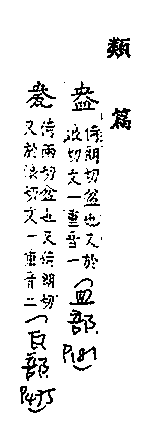 類篇
盎 倚朗切盆也又於
浪切文一重音一（皿部P.181）
瓷 倚兩切盆也又倚朗切
又於浪切文一重音二（瓦部P.475）